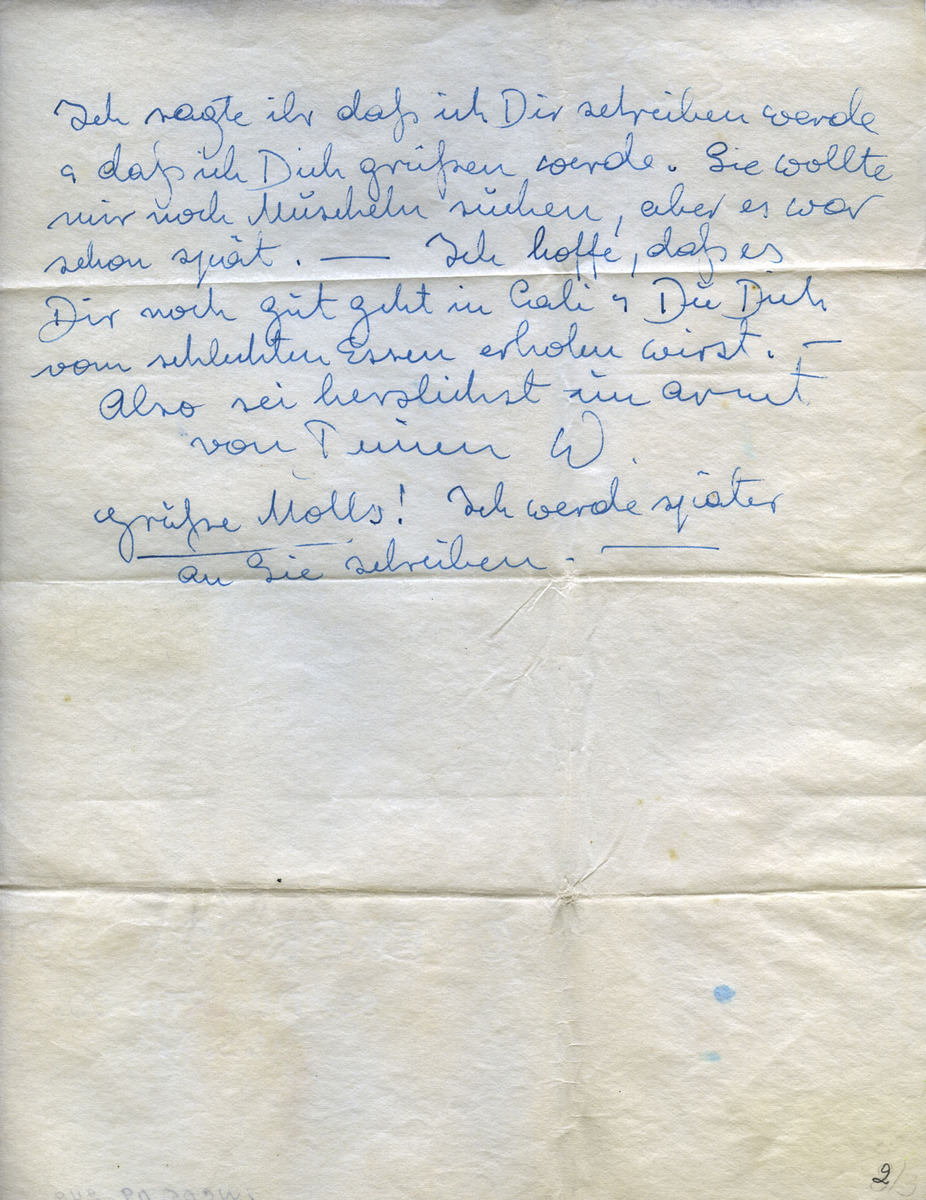 Ich sagte ihr daß ich Dir schreiben werde
& daß ich Dich grüßen werde. Sie wollte
mir noch Muscheln suchen, aber es war
schon spät. — Ich hoffe, daß es
Dir noch gut geht in Cali & Du Dich
vom schlechten Essen erholen wirst. —
Also sei herzlichst umarmt
von Deinem W.
Grüße Molls! Ich werde später
an Sie schreiben. —
2/3